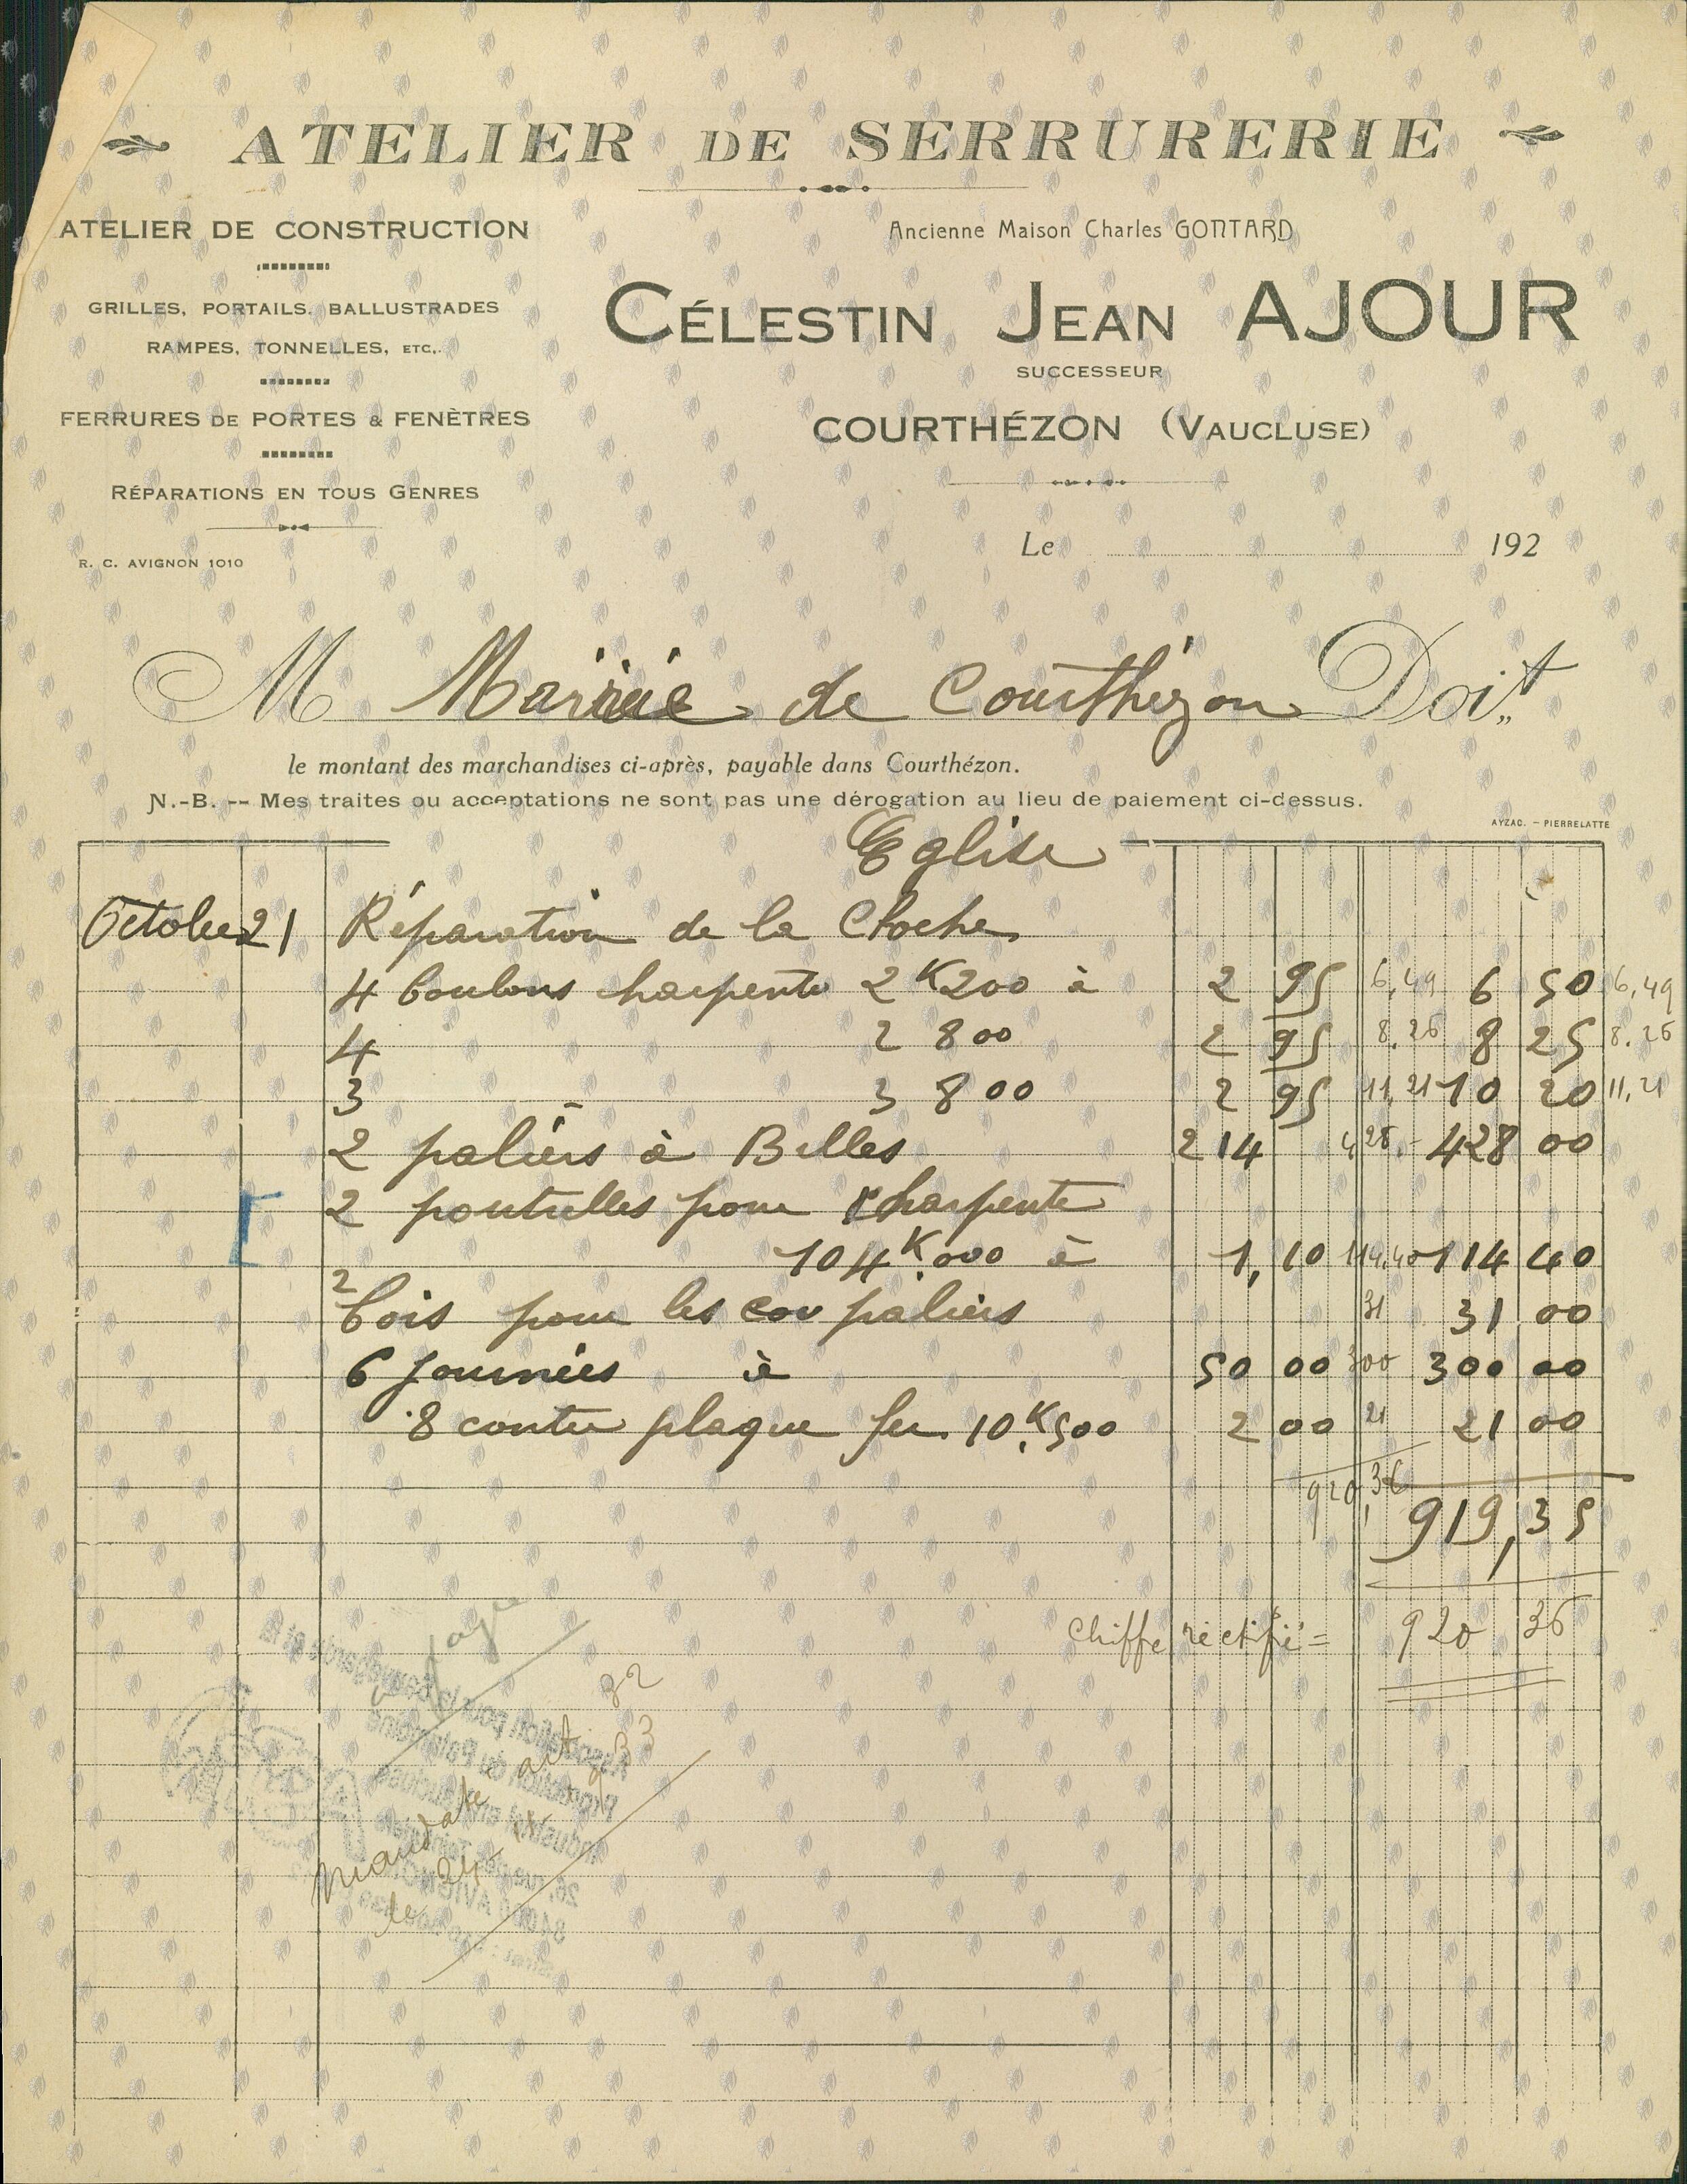 ATELIER DE SERRURERIE
ATELIER DE CONSTRUCTION
GRILLES, PORTAILS, BALLUSTRADES
RAMPES, TONNELLES, ETC,.
FERRURES DE PORTES & FENÈTRES
RÉPARATIONS EN TOUS GENRES
R. C. AVIGNON 1010
Ancienne Maison Charles GONTARD
CÉLESTIN JEAN AJOUR
SUCCESSEUR
COURTHÉZON (VAUCLUSE)
Le 192
M Mairie de Courthézon Doit
le montant des marchandises ci-après, payable dans Courthézon.
N.-B. -- Mes traites ou acceptations ne sont pas une dérogation au lieu de paiement ci-dessus.
AYZAC. - PIERRELATTE
Eglise
Octobre 21 Réparation de la Cloche
4 boulons charpente 2K200 à 2 95 6,49 6 50 6,49
4 2 800 2 95 8.26 8 25 8.26
3 3 800 2 95 11,21 10 20 11,21
2 paliers à Billes 214 428.- 428 00
2 poutrelles pour charpente
104K,000 à 1,10 114,40 114 40
2 bois pour les paliers 31 31 00
6 journées à 50 00 300 300 00
8 contre plaque fer 10K,500 2 00 21 21 00
920,36 919,35
Chiffre rectifié = 920 36
à payer
mandaté art 32
83
le 24
Association pour la Sauvegarde et la
Promotion du Patrimoine
Industriel en Vaucluse
26, rue des Teinturiers
84000 AVIGNON